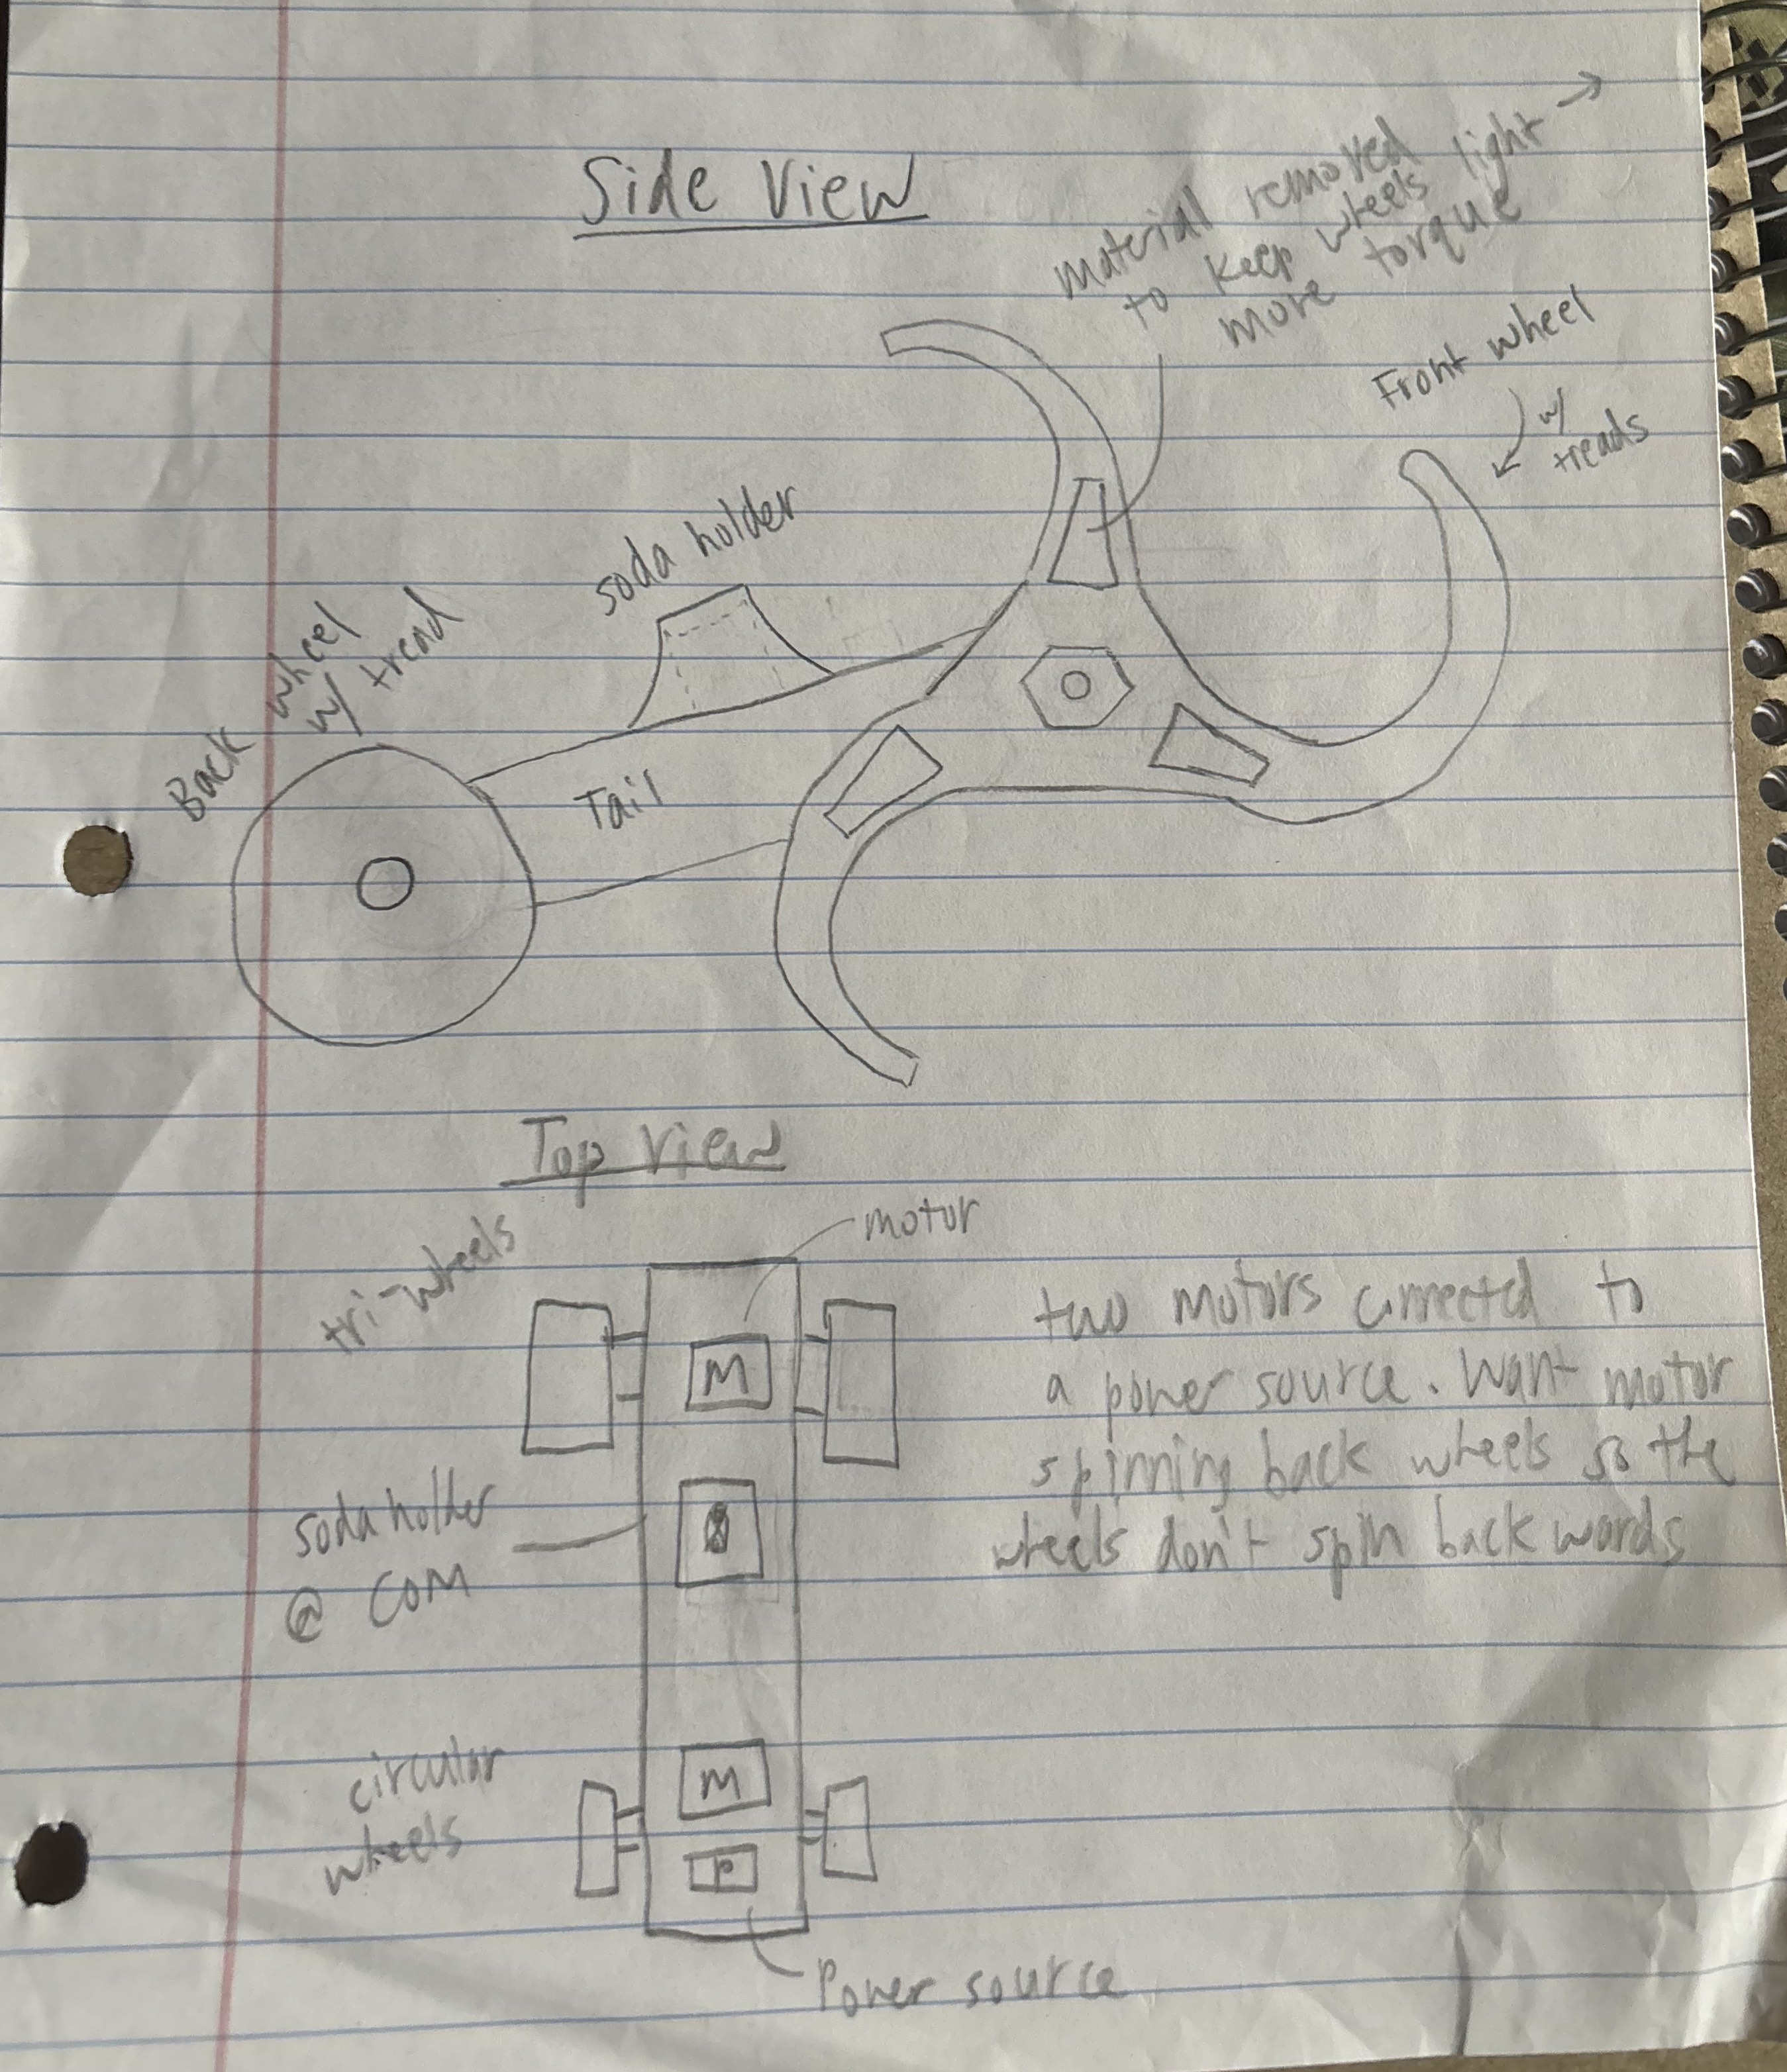 Side View
Material removed
to keep wheels light →
more torque
Front wheel
w/
treads
soda holder
Back wheel
w/ tread
Tail
Top View
tri-wheels
motor
M
two motors connected to
a power source. Want motor
spinning back wheels so the
wheels don't spin backwards
soda holder
@ COM
circular
wheels
M
P
Power source